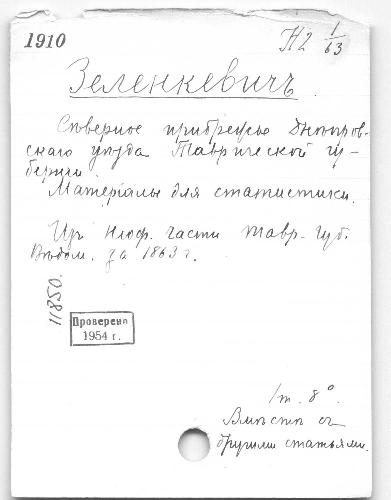 1910
Н2 1/63
Зеленкевичъ
Сѣверное прибрежье Днѣпров-
скаго уѣзда Таврической гу-
берніи
Матеріалы для статистики.
Изъ неоф. части Тавр. Губ.
Вѣдом. за 1863 г.
11850.
Проверено
1954 г.
1 т. 8°.
Вмѣстѣ съ
другими статьями.